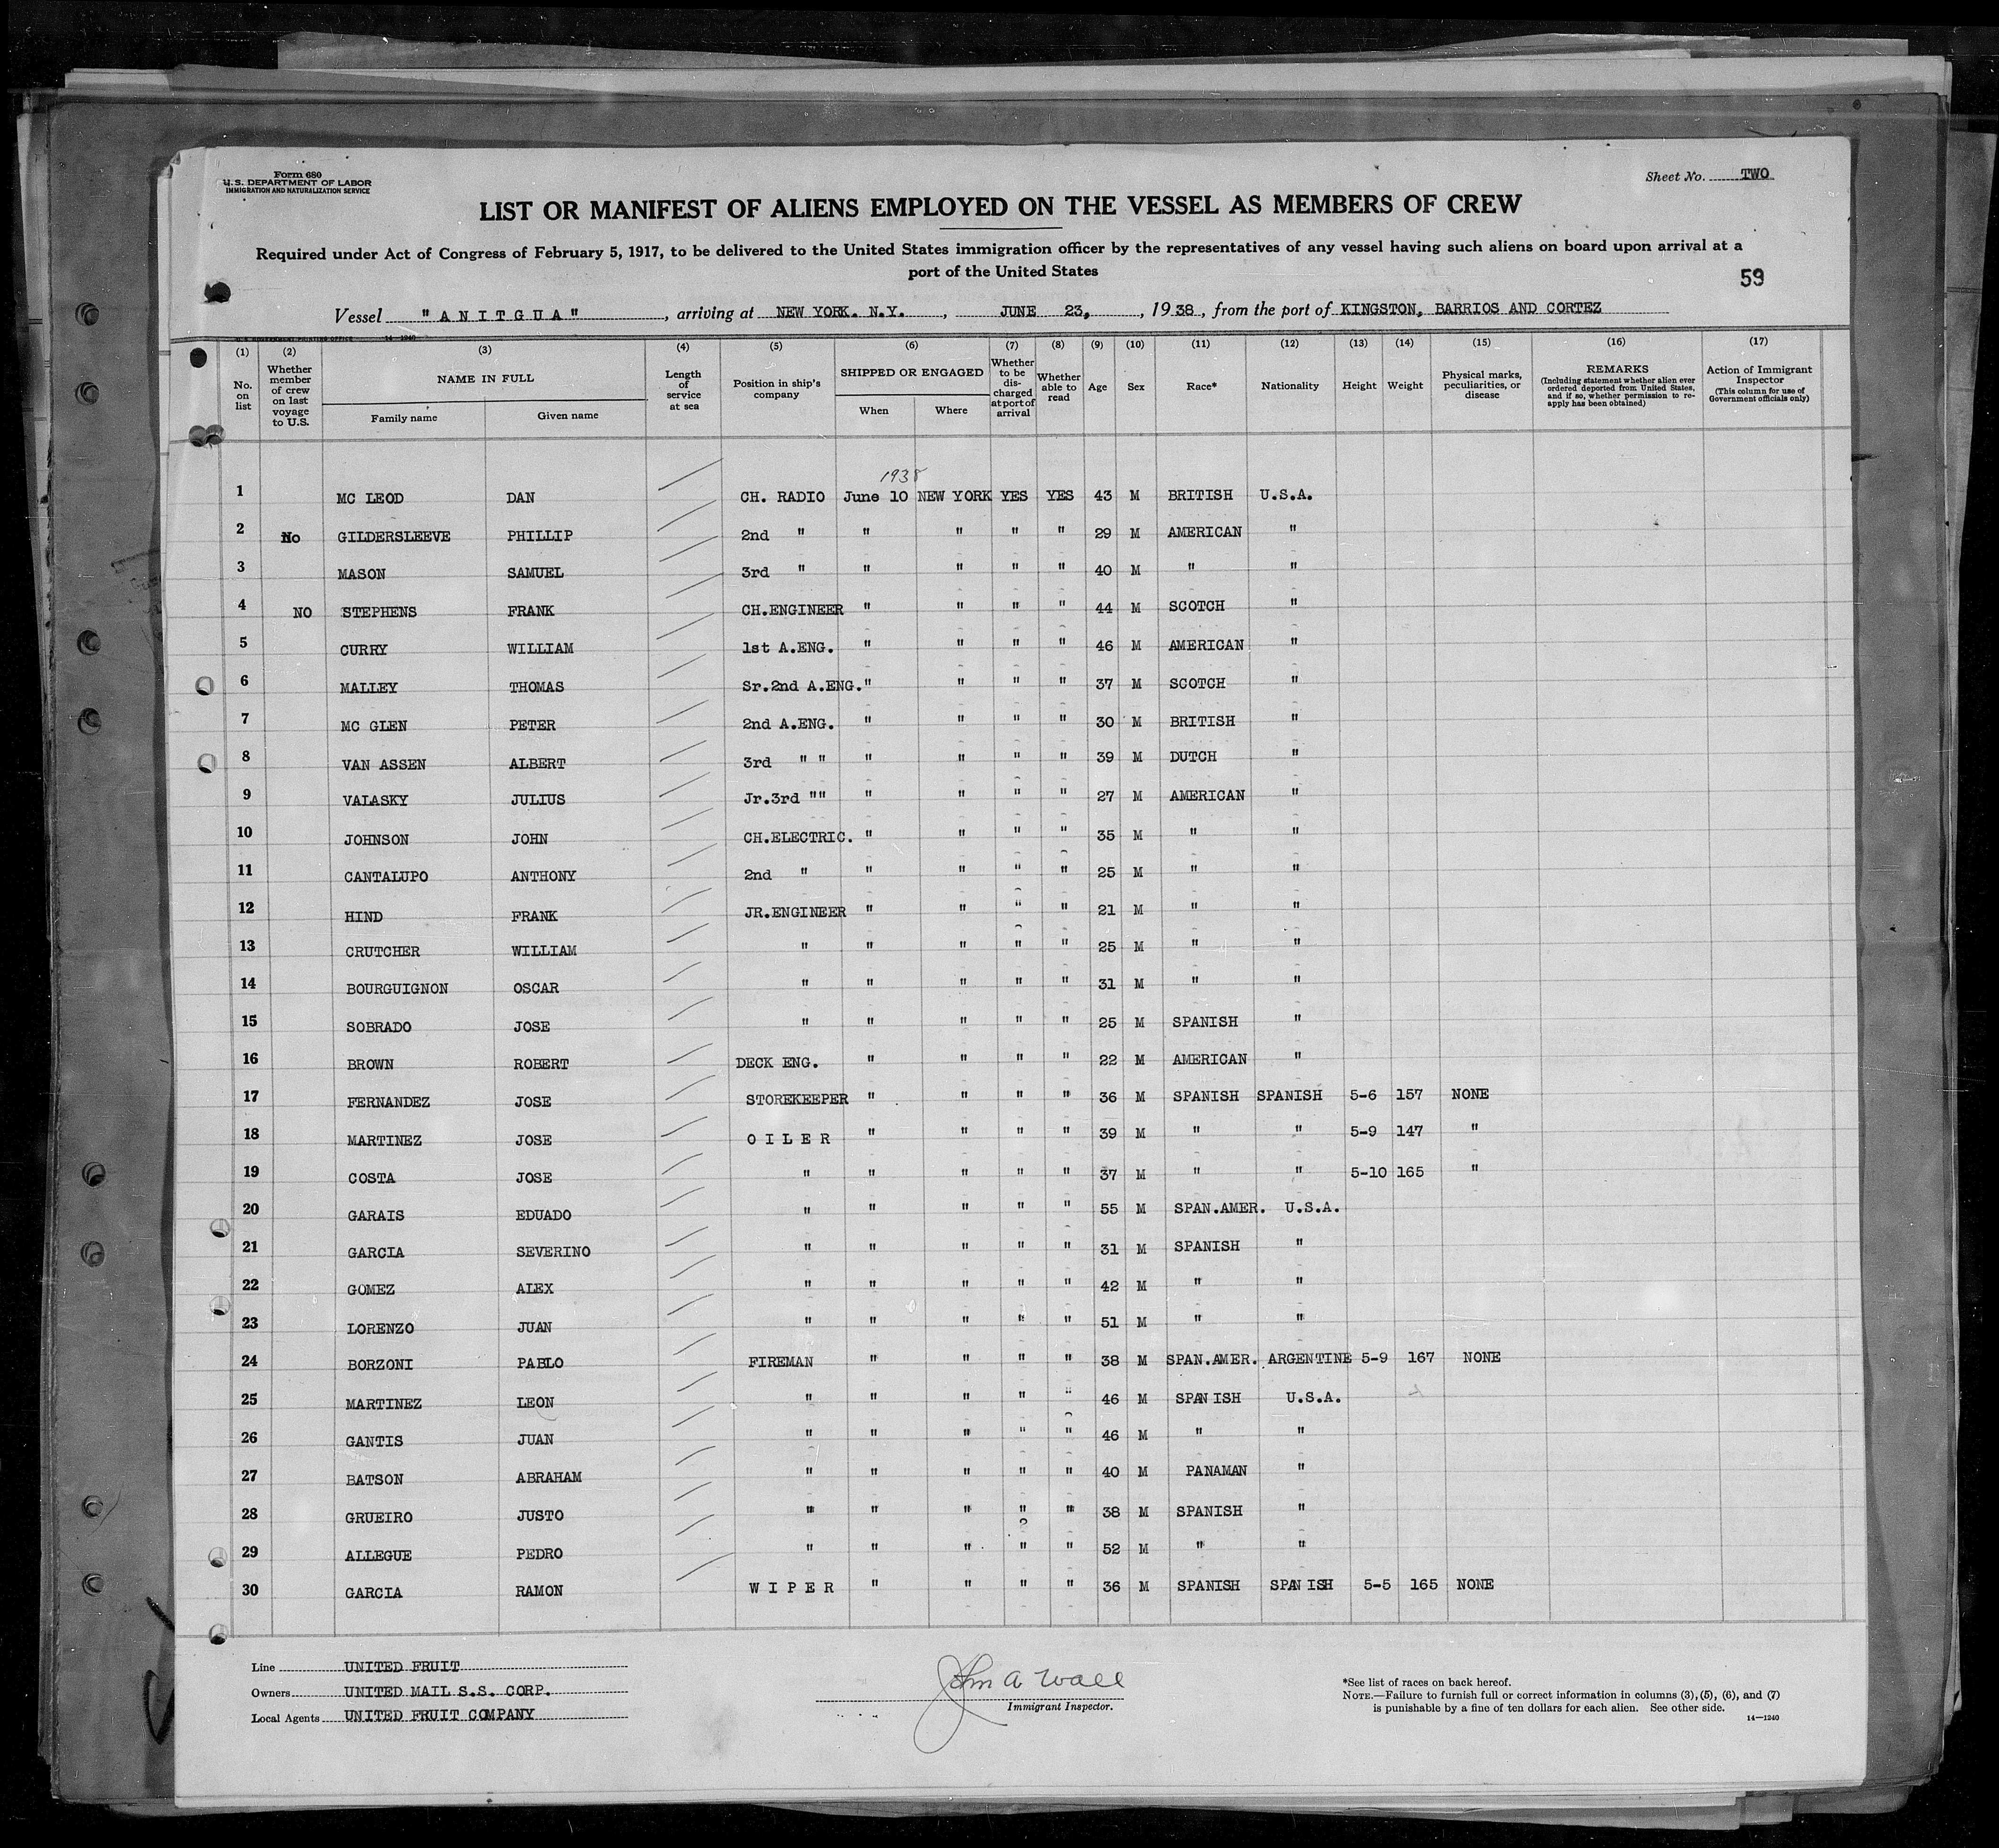 Form 680
U.S. DEPARTMENT OF LABOR
IMMIGRATION AND NATURALIZATION SERVICE
Sheet No. TWO
LIST OR MANIFEST OF ALIENS EMPLOYED ON THE VESSEL AS MEMBERS OF CREW
Required under Act of Congress of February 5, 1917, to be delivered to the United States immigration officer by the representatives of any vessel having such aliens on board upon arrival at a
port of the United States
59
Vessel "ANITGUA", arriving at NEW YORK. N.Y., JUNE 23, 1938, from the port of KINGSTON, BARRIOS AND CORTEZ
14-1240
(1) (2) (3) (4) (5) (6) (7) (8) (9) (10) (11) (12) (13) (14) (15) (16) (17)
No. on list
Whether member of crew on last voyage to U.S.
NAME IN FULL
Family name
Given name
Length of service at sea
Position in ship's company
SHIPPED OR ENGAGED
When
Where
Whether to be discharged at port of arrival
Whether able to read
Age
Sex
Race*
Nationality
Height
Weight
Physical marks, peculiarities, or disease
REMARKS
(Including statement whether alien ever ordered deported from United States, and if so, whether permission to reapply has been obtained)
Action of Immigrant Inspector
(This column for use of Government officials only)
1938
1 MC LEOD DAN CH. RADIO June 10 NEW YORK YES YES 43 M BRITISH U.S.A.
2 No GILDERSLEEVE PHILLIP 2nd " " " " " 29 M AMERICAN "
3 MASON SAMUEL 3rd " " " " " 40 M " "
4 NO STEPHENS FRANK CH.ENGINEER " " " " 44 M SCOTCH "
5 CURRY WILLIAM 1st A.ENG. " " " " 46 M AMERICAN "
6 MALLEY THOMAS Sr.2nd A.ENG. " " " " 37 M SCOTCH "
7 MC GLEN PETER 2nd A.ENG. " " " " 30 M BRITISH "
8 VAN ASSEN ALBERT 3rd " " " " " " 39 M DUTCH "
9 VALASKY JULIUS Jr.3rd "" " " " " 27 M AMERICAN "
10 JOHNSON JOHN CH.ELECTRIC. " " " " 35 M " "
11 CANTALUPO ANTHONY 2nd " " " " " 25 M " "
12 HIND FRANK JR.ENGINEER " " " " 21 M " "
13 CRUTCHER WILLIAM " " " " " 25 M " "
14 BOURGUIGNON OSCAR " " " " " 31 M " "
15 SOBRADO JOSE " " " " " 25 M SPANISH "
16 BROWN ROBERT DECK ENG. " " " " 22 M AMERICAN "
17 FERNANDEZ JOSE STOREKEEPER " " " " 36 M SPANISH SPANISH 5-6 157 NONE
18 MARTINEZ JOSE OILER " " " " 39 M " " 5-9 147 "
19 COSTA JOSE " " " " " 37 M " " 5-10 165 "
20 GARAIS EDUADO " " " " " 55 M SPAN.AMER. U.S.A.
21 GARCIA SEVERINO " " " " " 31 M SPANISH "
22 GOMEZ ALEX " " " " " 42 M " "
23 LORENZO JUAN " " " " " 51 M " "
24 BORZONI PABLO FIREMAN " " " " 38 M SPAN.AMER. ARGENTINE 5-9 167 NONE
25 MARTINEZ LEON " " " " " 46 M SPANISH U.S.A.
26 GANTIS JUAN " " " " " 46 M " "
27 BATSON ABRAHAM " " " " " 40 M PANAMAN "
28 GRUEIRO JUSTO " " " " " 38 M SPANISH "
29 ALLEGUE PEDRO " " " " " 52 M " "
30 GARCIA RAMON WIPER " " " " 36 M SPANISH SPANISH 5-5 165 NONE
Line UNITED FRUIT
Owners UNITED MAIL S.S. CORP.
Local Agents UNITED FRUIT COMPANY
John A Wall
Immigrant Inspector.
*See list of races on back hereof.
NOTE.—Failure to furnish full or correct information in columns (3), (5), (6), and (7)
is punishable by a fine of ten dollars for each alien. See other side.
14—1240